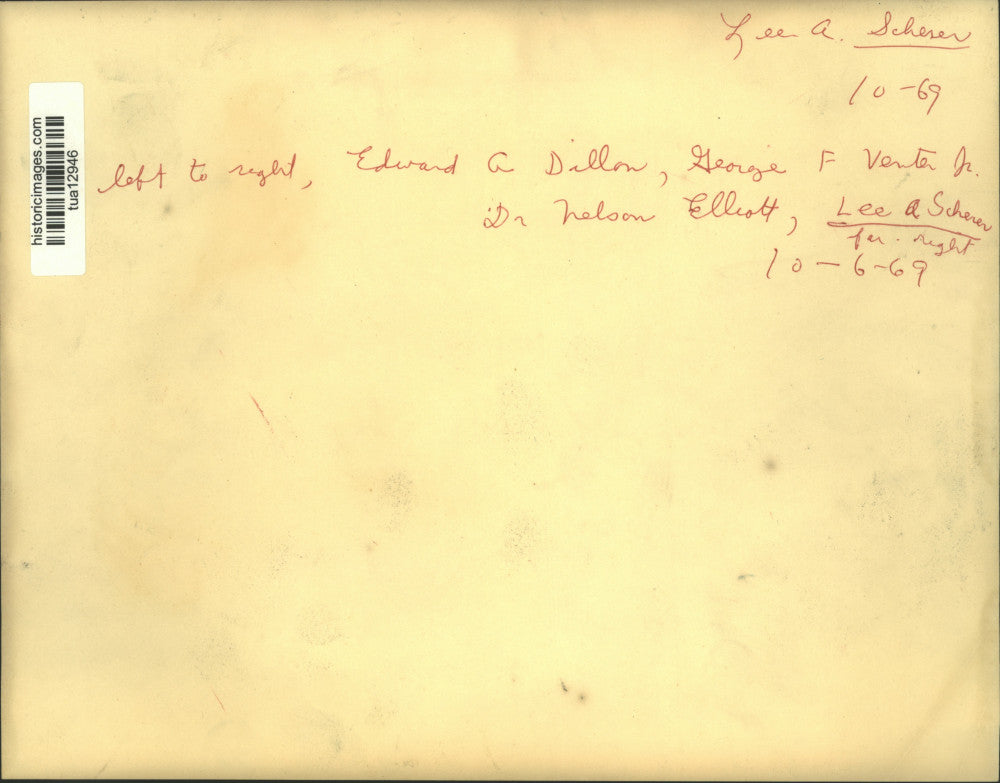 Lee A. Scherer
10-69
left to right, Edward A Dillon, George F Venter Jr.
Dr Nelson Elliott, Lee A Scherer
far right
10-6-69
historicimages.com
tua12946